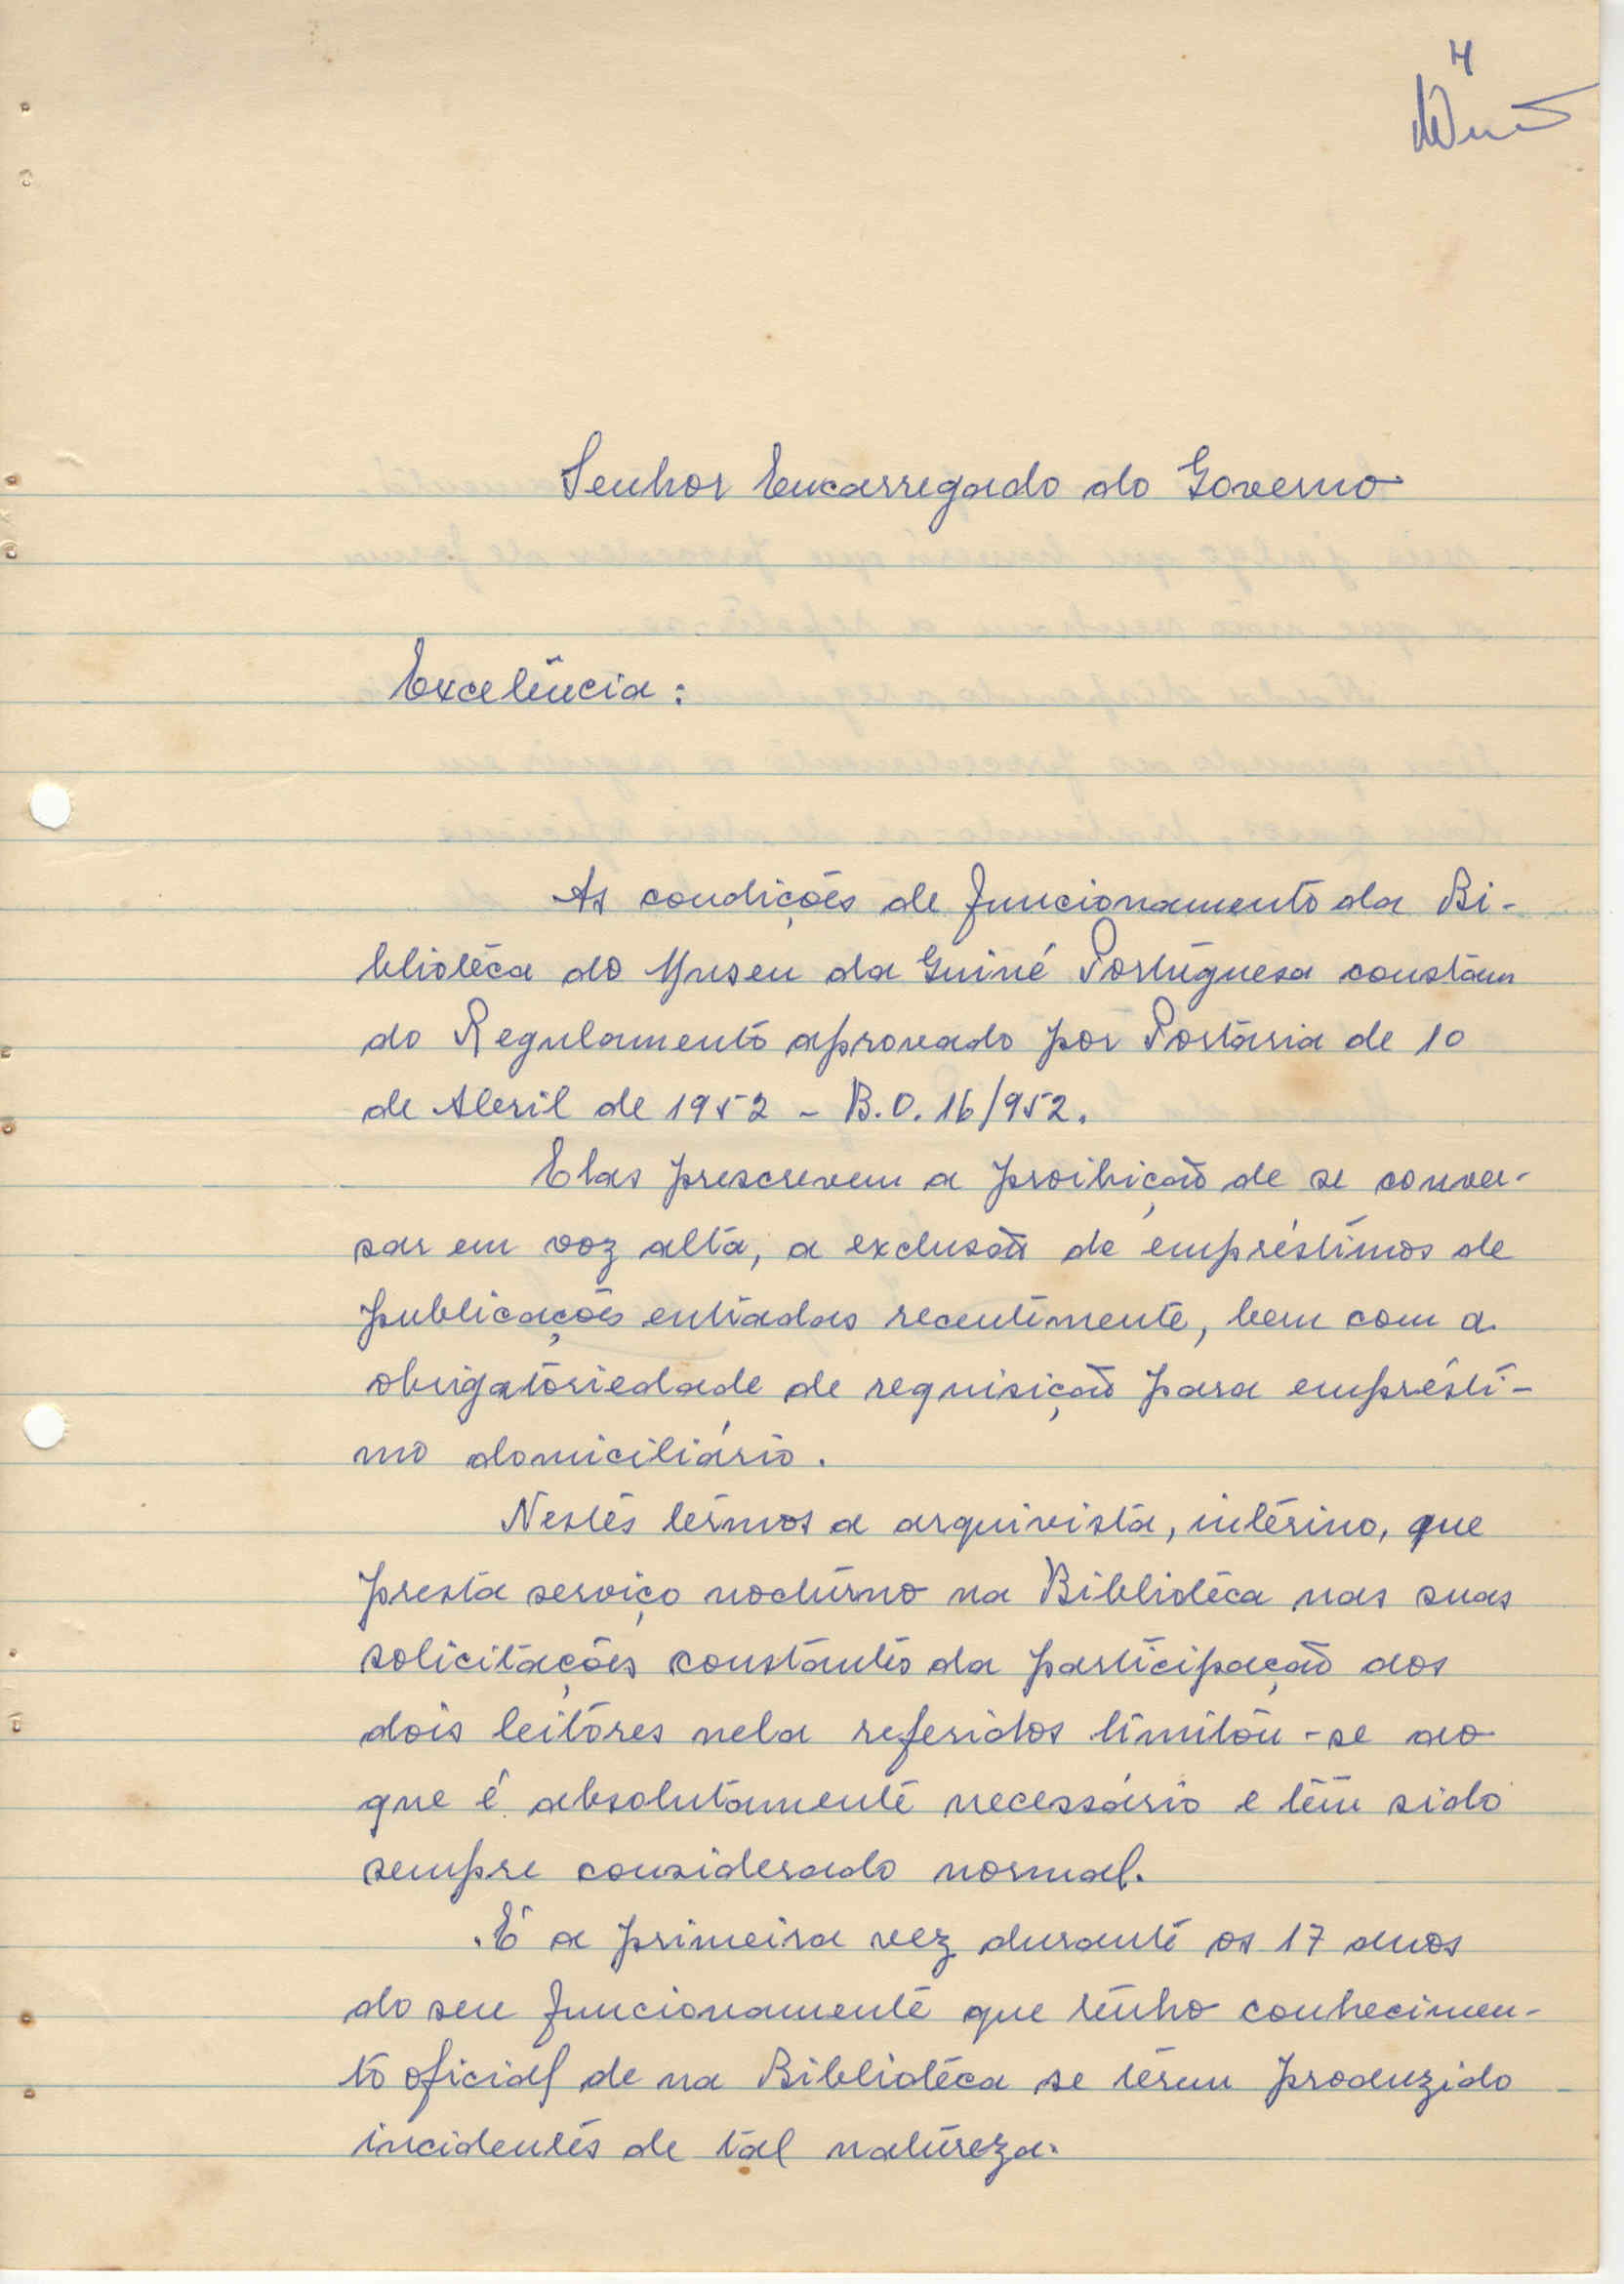 4
Senhor Encarregado do Governo
Excelência:
As condições de funcionamento da Bi-
blioteca do Museu da Guiné Portuguesa constam
do Regulamento aprovado por Portaria de 10
de Abril de 1952 - B.O. 16/952.
Elas prescrevem a proibição de se conver-
sar em voz alta, a exclusão de empréstimos de
publicações entradas recentemente, bem com a
obrigatoriedade de requisição para emprésti-
mo domiciliário.
Nestes termos a arquivista, interino, que
presta serviço nocturno na Biblioteca nas suas
solicitações constantes da participação aos
dois leitores nela referidos limitou-se ao
que é absolutamente necessário e tem sido
sempre considerado normal.
É a primeira vez durante os 17 anos
do seu funcionamente que tenho conhecimen-
to oficial de na Biblioteca se terem produzido
incidentes de tal natureza.